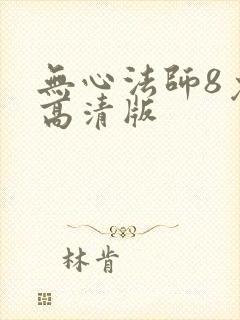 無心法師8
高清版
林肯